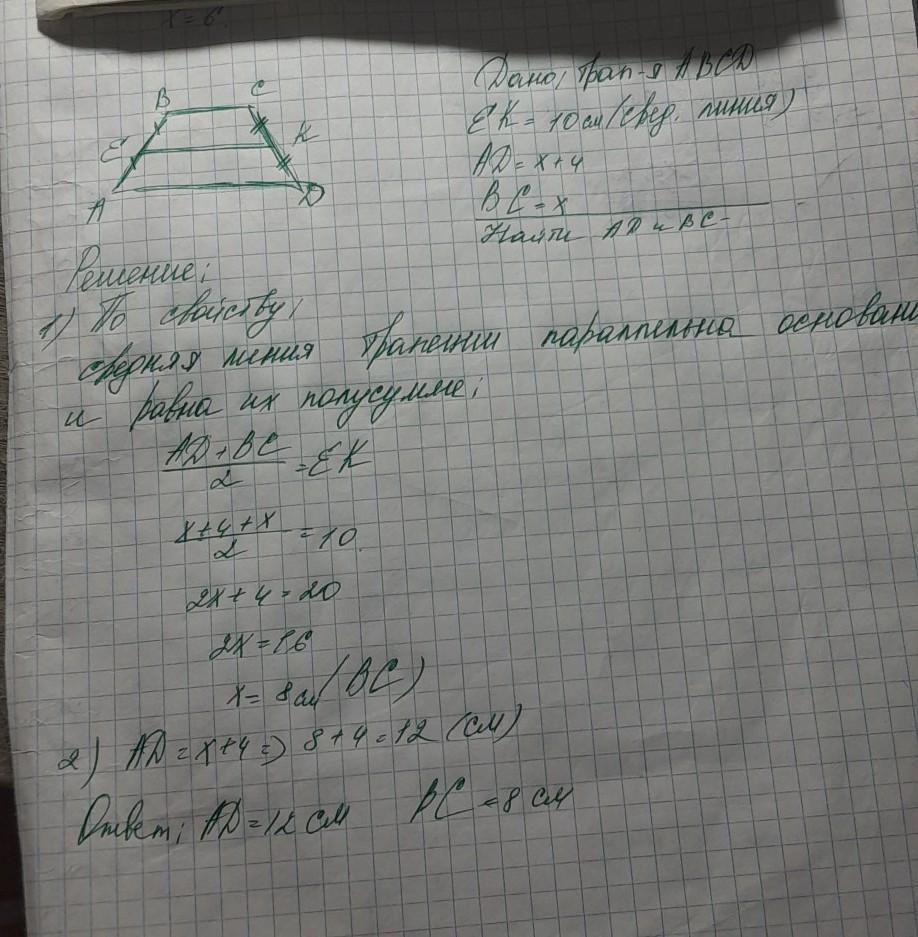 x = 6.
B
C
E
K
A
D
Дано: трап-я ABCD
EK = 10 см (сред. линия)
AD = x + 4
BC = x
Найти AD и BC -
Решение:
1) По свойству:
средняя линия трапеции параллельна основани
и равна их полусумме:
AD + BC / 2 = EK
x + 4 + x / 2 = 10.
2x + 4 = 20
2x = 16
x = 8 см (BC)
2) AD = x + 4 => 8 + 4 = 12 (см)
Ответ: AD = 12 см BC = 8 см